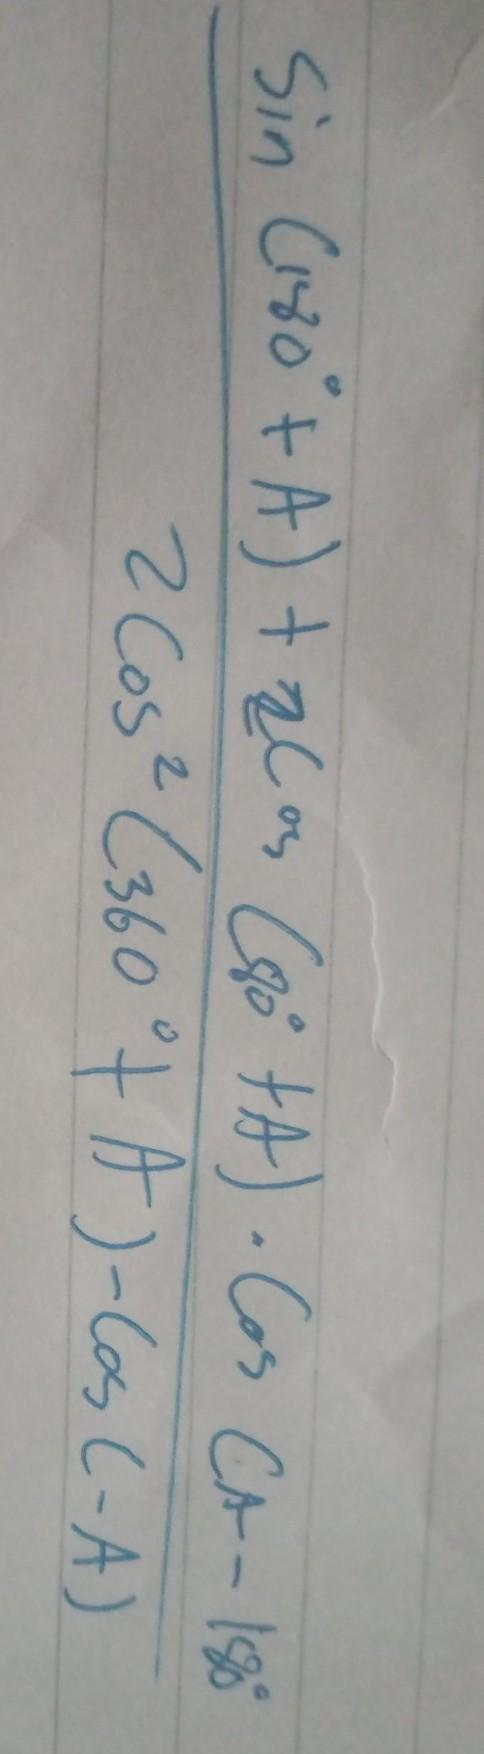 Sin (180° + A) + 2Cos (90° + A) . Cos (A - 180°
2Cos² (360° + A) - Cos (-A)